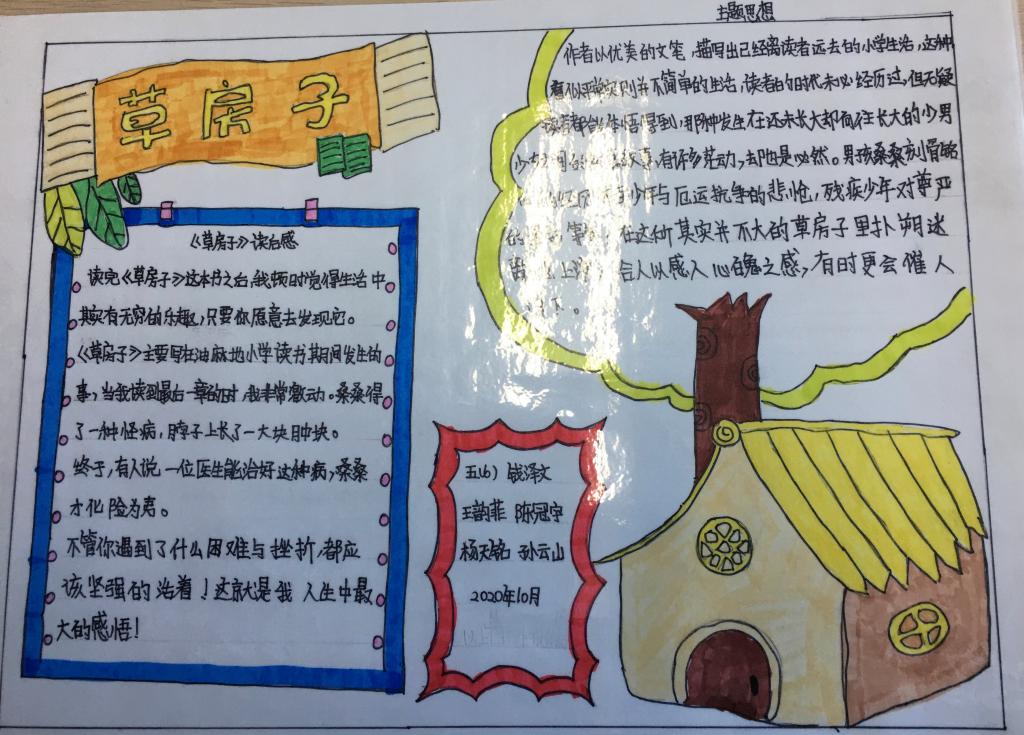 主题思想
草房子
作者以优美的文笔,描写出已经离读者远去的小学生活,这种
看似平常实则并不简单的生活,读者的时代未必经历过,但无疑
读者都能体悟得到,那种发生在还未长大却向往长大的少男
少女之间的故事,有许多荒动,却也是必然。男孩桑桑刻骨铭
少年与厄运抗争的悲怆,残疾少年对尊严
在这种其实并不大的草房子里扑朔迷
上演,给人以感人心魄之感,有时更会催人
下。
《草房子》读后感
读完《草房子》这本书之后,我顿时觉得生活中
其实有无穷的乐趣,只要你愿意去发现它。
《草房子》主要写在油麻地小学读书其间发生的
事,当我读到最后一章的时,我非常激动。桑桑得
了一种怪病,脖子上长了一大块肿块。
终于,有人说一位医生能治好这种病,桑桑
才化险为夷。
不管你遇到了什么困难与挫折,都应
该坚强的活着!这就是我人生中最
大的感悟!
五(6) 钱泽文
王韵菲 陈冠宇
杨天铭 孙云山
2020年10月